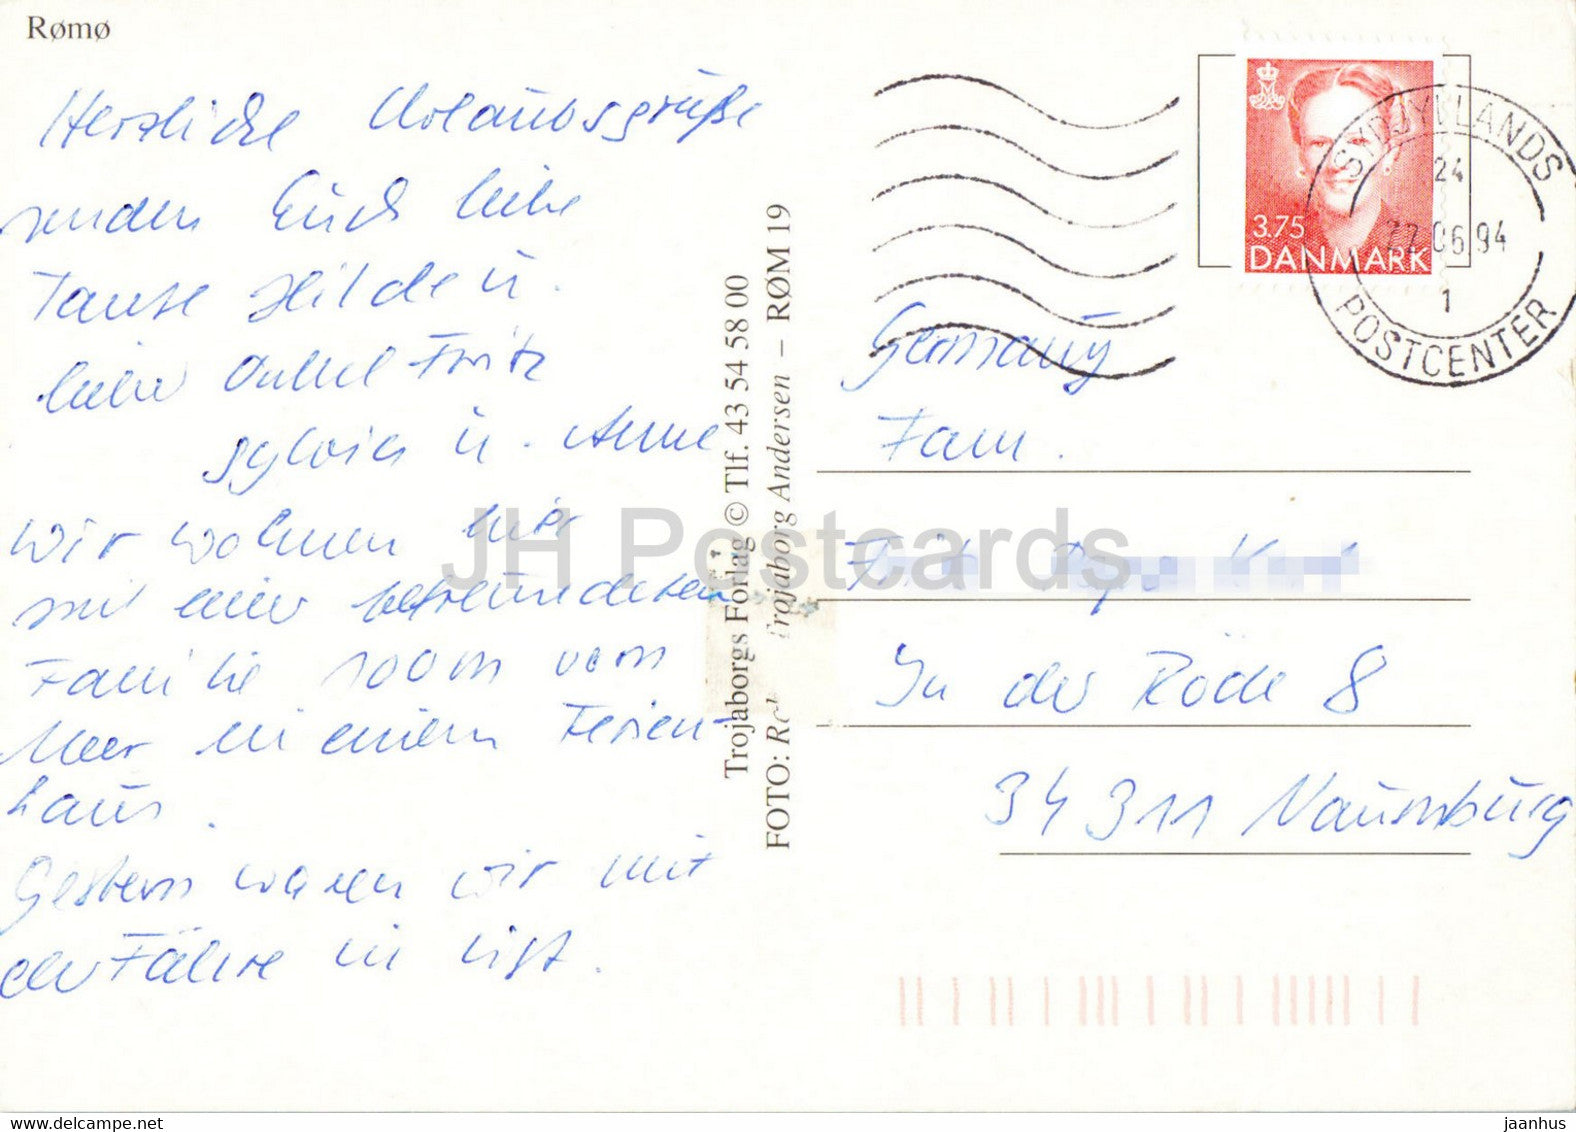 Rømø
Herzliche Urlaubsgrüße
senden Euch liebe
Tante Hilde u.
lieber Onkel Fritz
Sylvia u. Anne
Wir wohnen hier
mit einer befreundeten
Familie 100m vom
Meer in einem Ferien-
haus.
Gestern waren wir mit
der Fähre in List.
Trojaborgs Forlag © Tlf. 43 54 58 00
FOTO: Trojaborg Andersen – RØM 19
3.75
DANMARK
SYDJYLLANDS
24
22.06.94
1
POSTCENTER
Germany
Fam.
In der Röde 8
34311 Naumburg
JH Postcards
jaanhus